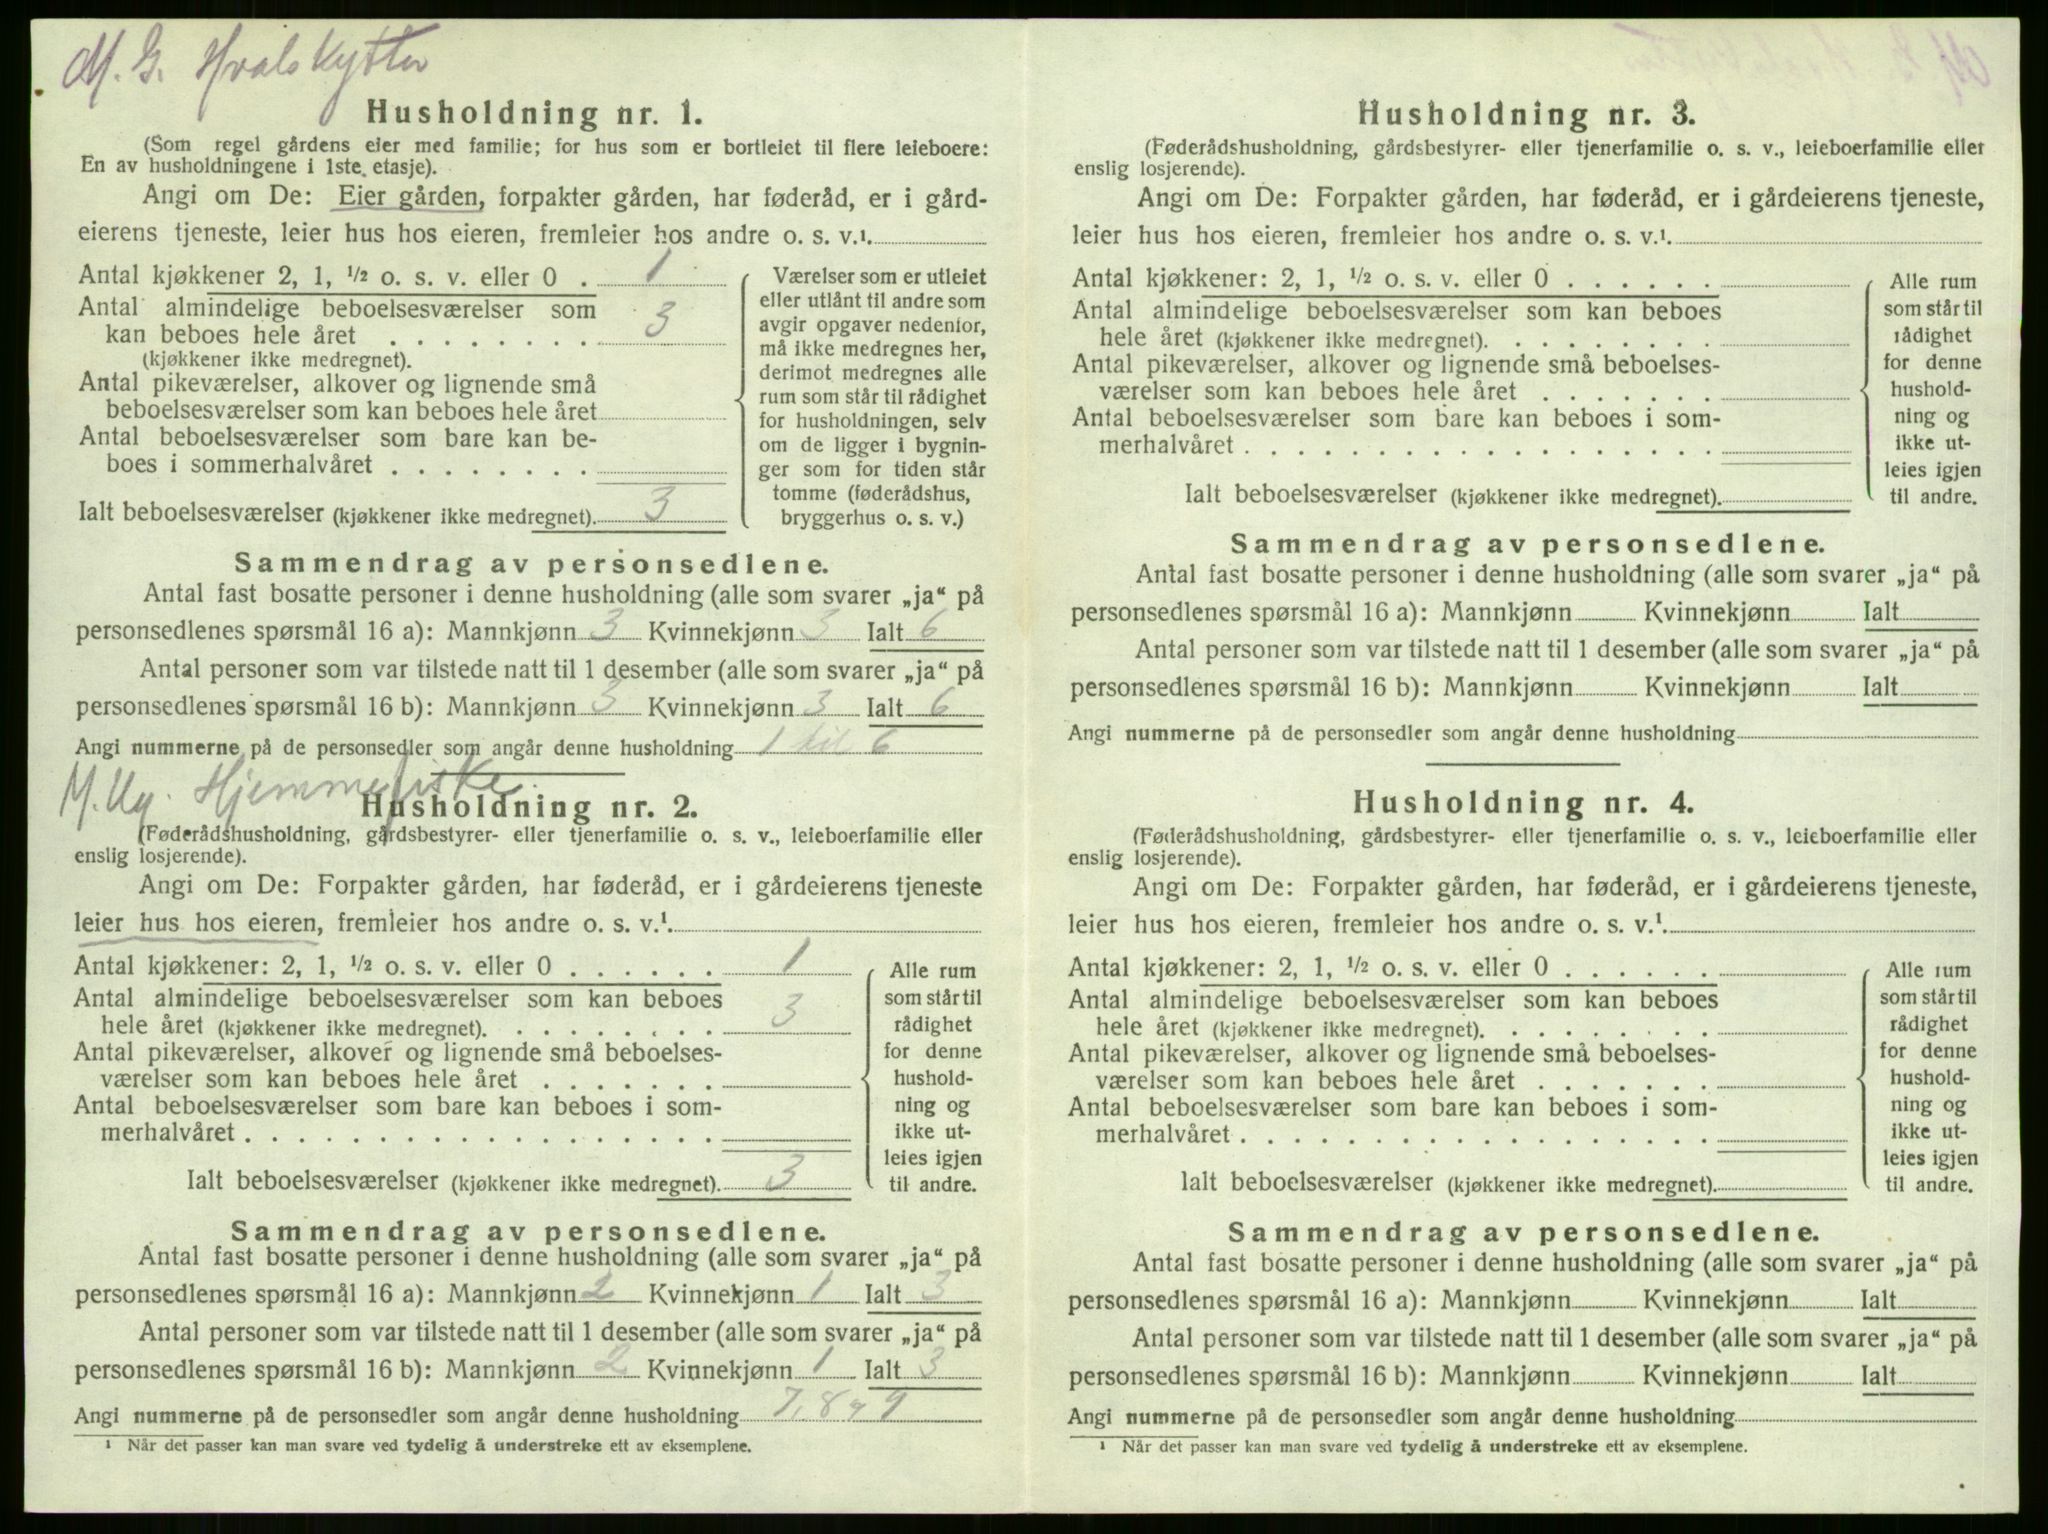 M. G. Hvalskytter
Husholdning nr. 1.
(Som regel gårdens eier med familie; for hus som er bortleiet til flere leieboere:
En av husholdningene i 1ste. etasje).
Angi om De: Eier gården, forpakter gården, har føderåd, er i gård-
eierens tjeneste, leier hus hos eieren, fremleier hos andre o. s. v.¹.
Antal kjøkkener 2, 1, ½ o. s. v. eller 0 . 1
Antal almindelige beboelsesværelser som
kan beboes hele året . . . . . . . . 3
(kjøkkener ikke medregnet).
Antal pikeværelser, alkover og lignende små
beboelsesværelser som kan beboes hele året
Antal beboelsesværelser som bare kan be-
boes i sommerhalvåret . . . . . . .
Ialt beboelsesværelser (kjøkkener ikke medregnet). 3
Værelser som er utleiet
eller utlånt til andre som
avgir opgaver nedenfor,
må ikke medregnes her,
derimot medregnes alle
rum som står til rådighet
for husholdningen, selv
om de ligger i bygnin-
ger som for tiden står
tomme (føderådshus,
bryggerhus o. s. v.)
Sammendrag av personsedlene.
Antal fast bosatte personer i denne husholdning (alle som svarer „ja“ på
personsedlenes spørsmål 16 a): Mannkjønn 3 Kvinnekjønn 3 Ialt 6
Antal personer som var tilstede natt til 1 desember (alle som svarer „ja“ på
personsedlenes spørsmål 16 b): Mannkjønn 3 Kvinnekjønn 3 Ialt 6
Angi nummerne på de personsedler som angår denne husholdning 1 til 6
M. Ug. Hjemmefiske
Husholdning nr. 2.
(Føderådshusholdning, gårdsbestyrer- eller tjenerfamilie o. s. v., leieboerfamilie eller
enslig losjerende).
Angi om De: Forpakter gården, har føderåd, er i gårdeierens tjeneste
leier hus hos eieren, fremleier hos andre o. s. v.¹.
Antal kjøkkener: 2, 1, ½ o. s. v. eller 0 . . . . . . 1
Antal almindelige beboelsesværelser som kan beboes
hele året (kjøkkener ikke medregnet). . . . . . . . . 3
Antal pikeværelser, alkover og lignende små beboelses-
værelser som kan beboes hele året . . . . . . .
Antal beboelsesværelser som bare kan beboes i som-
merhalvåret . . . . . . . . . . . . . . . . . .
Ialt beboelsesværelser (kjøkkener ikke medregnet). 3
Alle rum
som står til
rådighet
for denne
hushold-
ning og
ikke ut-
leies igjen
til andre.
Sammendrag av personsedlene.
Antal fast bosatte personer i denne husholdning (alle som svarer „ja“ på
personsedlenes spørsmål 16 a): Mannkjønn 2 Kvinnekjønn 1 Ialt 3
Antal personer som var tilstede natt til 1 desember (alle som svarer „ja“ på
personsedlenes spørsmål 16 b): Mannkjønn 2 Kvinnekjønn 1 Ialt 3
Angi nummerne på de personsedler som angår denne husholdning 7, 8 og 9
¹ Når det passer kan man svare ved tydelig å understreke ett av eksemplene.
Husholdning nr. 3.
(Føderådshusholdning, gårdsbestyrer- eller tjenerfamilie o. s. v., leieboerfamilie eller
enslig losjerende).
Angi om De: Forpakter gården, har føderåd, er i gårdeierens tjeneste,
leier hus hos eieren, fremleier hos andre o. s. v.¹.
Antal kjøkkener: 2, 1, ½ o. s. v. eller 0 . . . . . .
Antal almindelige beboelsesværelser som kan beboes
hele året (kjøkkener ikke medregnet). . . . . . . . .
Antal pikeværelser, alkover og lignende små beboelses-
værelser som kan beboes hele året . . . . . . .
Antal beboelsesværelser som bare kan beboes i som-
merhalvåret . . . . . . . . . . . . . . . . . .
Ialt beboelsesværelser (kjøkkener ikke medregnet).
Alle rum
som står til
rådighet
for denne
hushold-
ning og
ikke ut-
leies igjen
til andre.
Sammendrag av personsedlene.
Antal fast bosatte personer i denne husholdning (alle som svarer „ja“ på
personsedlenes spørsmål 16 a): Mannkjønn Kvinnekjønn Ialt
Antal personer som var tilstede natt til 1 desember (alle som svarer „ja“ på
personsedlenes spørsmål 16 b): Mannkjønn Kvinnekjønn Ialt
Angi nummerne på de personsedler som angår denne husholdning
Husholdning nr. 4.
(Føderådshusholdning, gårdsbestyrer- eller tjenerfamilie o. s. v., leieboerfamilie eller
enslig losjerende).
Angi om De: Forpakter gården, har føderåd, er i gårdeierens tjeneste,
leier hus hos eieren, fremleier hos andre o. s. v.¹.
Antal kjøkkener: 2, 1, ½ o. s. v. eller 0 . . . . . .
Antal almindelige beboelsesværelser som kan beboes
hele året (kjøkkener ikke medregnet). . . . . . . . .
Antal pikeværelser, alkover og lignende små beboelses-
værelser som kan beboes hele året . . . . . . .
Antal beboelsesværelser som bare kan beboes i som-
merhalvåret . . . . . . . . . . . . . . . . . .
Ialt beboelsesværelser (kjøkkener ikke medregnet).
Alle rum
som står til
rådighet
for denne
hushold-
ning og
ikke ut-
leies igjen
til andre.
Sammendrag av personsedlene.
Antal fast bosatte personer i denne husholdning (alle som svarer „ja“ på
personsedlenes spørsmål 16 a): Mannkjønn Kvinnekjønn Ialt
Antal personer som var tilstede natt til 1 desember (alle som svarer „ja“ på
personsedlenes spørsmål 16 b): Mannkjønn Kvinnekjønn Ialt
Angi nummerne på de personsedler som angår denne husholdning
¹ Når det passer kan man svare ved tydelig å understreke ett av eksemplene.